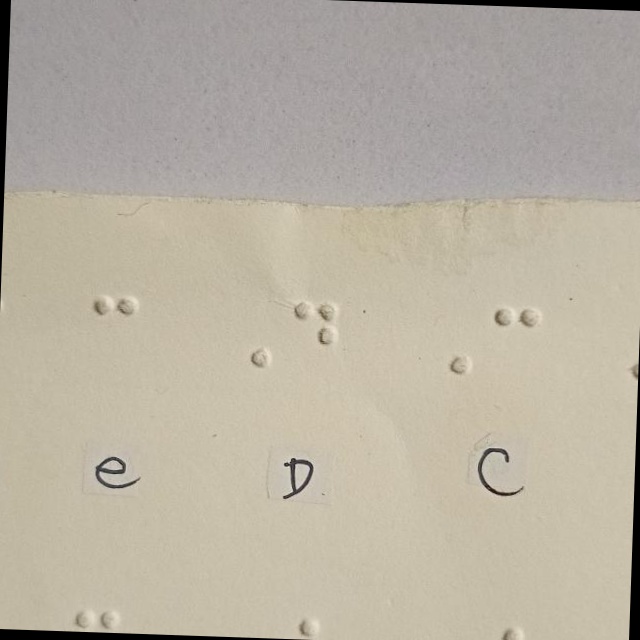 ⠉ ⠠⠙ ⠠⠉
e D C